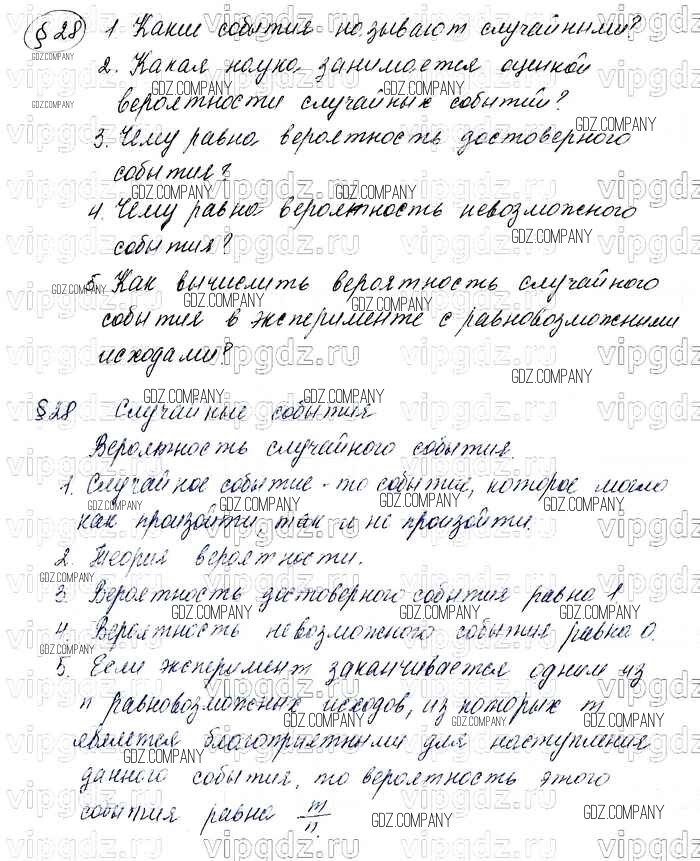 § 28 1. Какие события называют случайными?
2. Какая наука занимается оценкой
вероятности случайных событий?
3. Чему равна вероятность достоверного
события?
4. Чему равна вероятность невозможного
события?
5. Как вычислить вероятность случайного
события в эксперименте с равновозможными
исходами?
§ 28 Случайные события
Вероятность случайного события.
1. Случайное событие - то событие, которое могло
как произойти, так и не произойти.
2. Теория вероятности.
3. Вероятность достоверного события равна 1
4. Вероятность невозможного события равна 0.
5. Если эксперимент заканчивается одним из
n равновозможных исходов, из которых m
является благоприятными для наступления
данного события, то вероятность этого
события равна m/n.